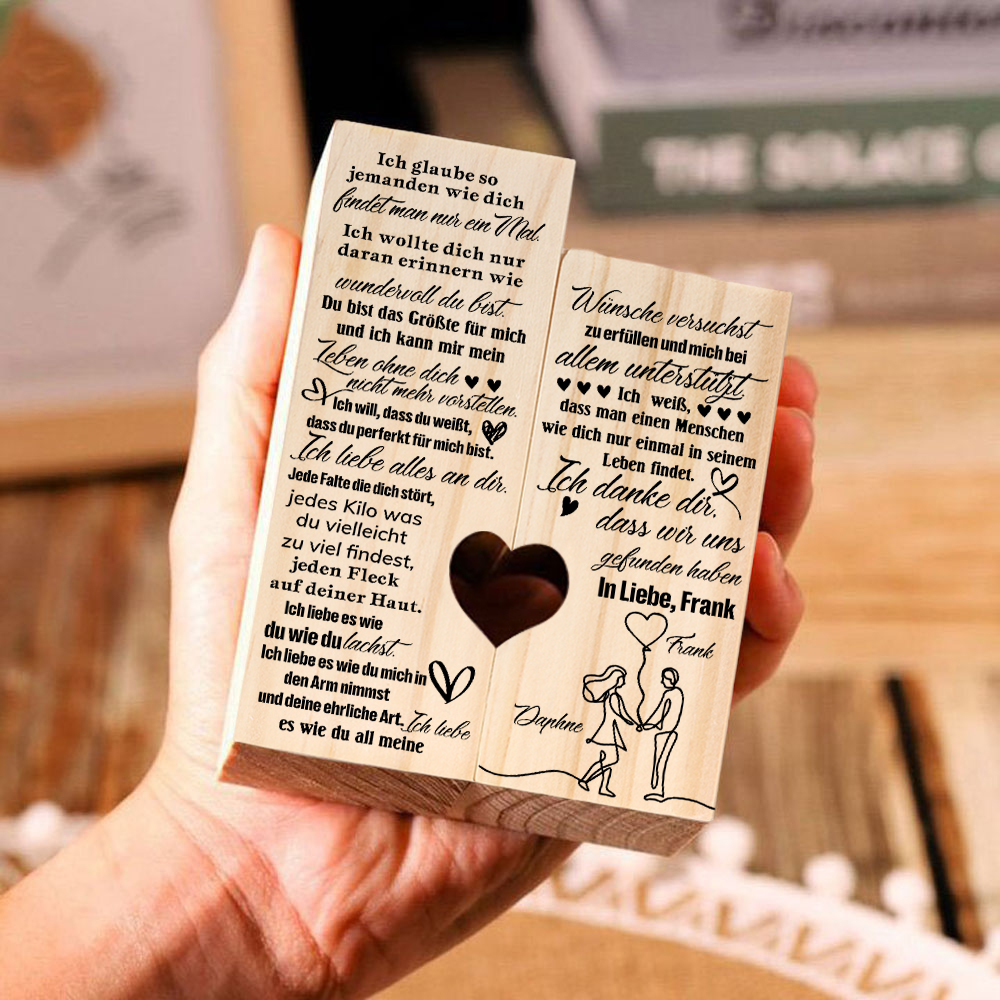 Ich glaube so
jemanden wie dich
findet man nur ein Mal.
Ich wollte dich nur
daran erinnern wie
wundervoll du bist.
Du bist das Größte für mich
und ich kann mir mein
Leben ohne dich
nicht mehr vorstellen.
Ich will, dass du weißt,
dass du perferkt für mich bist.
Ich liebe alles an dir.
Jede Falte die dich stört,
jedes Kilo was
du vielleicht
zu viel findest,
jeden Fleck
auf deiner Haut.
Ich liebe es wie
du wie du lachst.
Ich liebe es wie du mich in
den Arm nimmst
und deine ehrliche Art. Ich liebe
es wie du all meine
Wünsche versuchst
zu erfüllen und mich bei
allem unterstützt.
Ich weiß,
dass man einen Menschen
wie dich nur einmal in seinem
Leben findet.
Ich danke dir,
dass wir uns
gefunden haben
In Liebe, Frank
Frank
Daphne
THE SOLACE